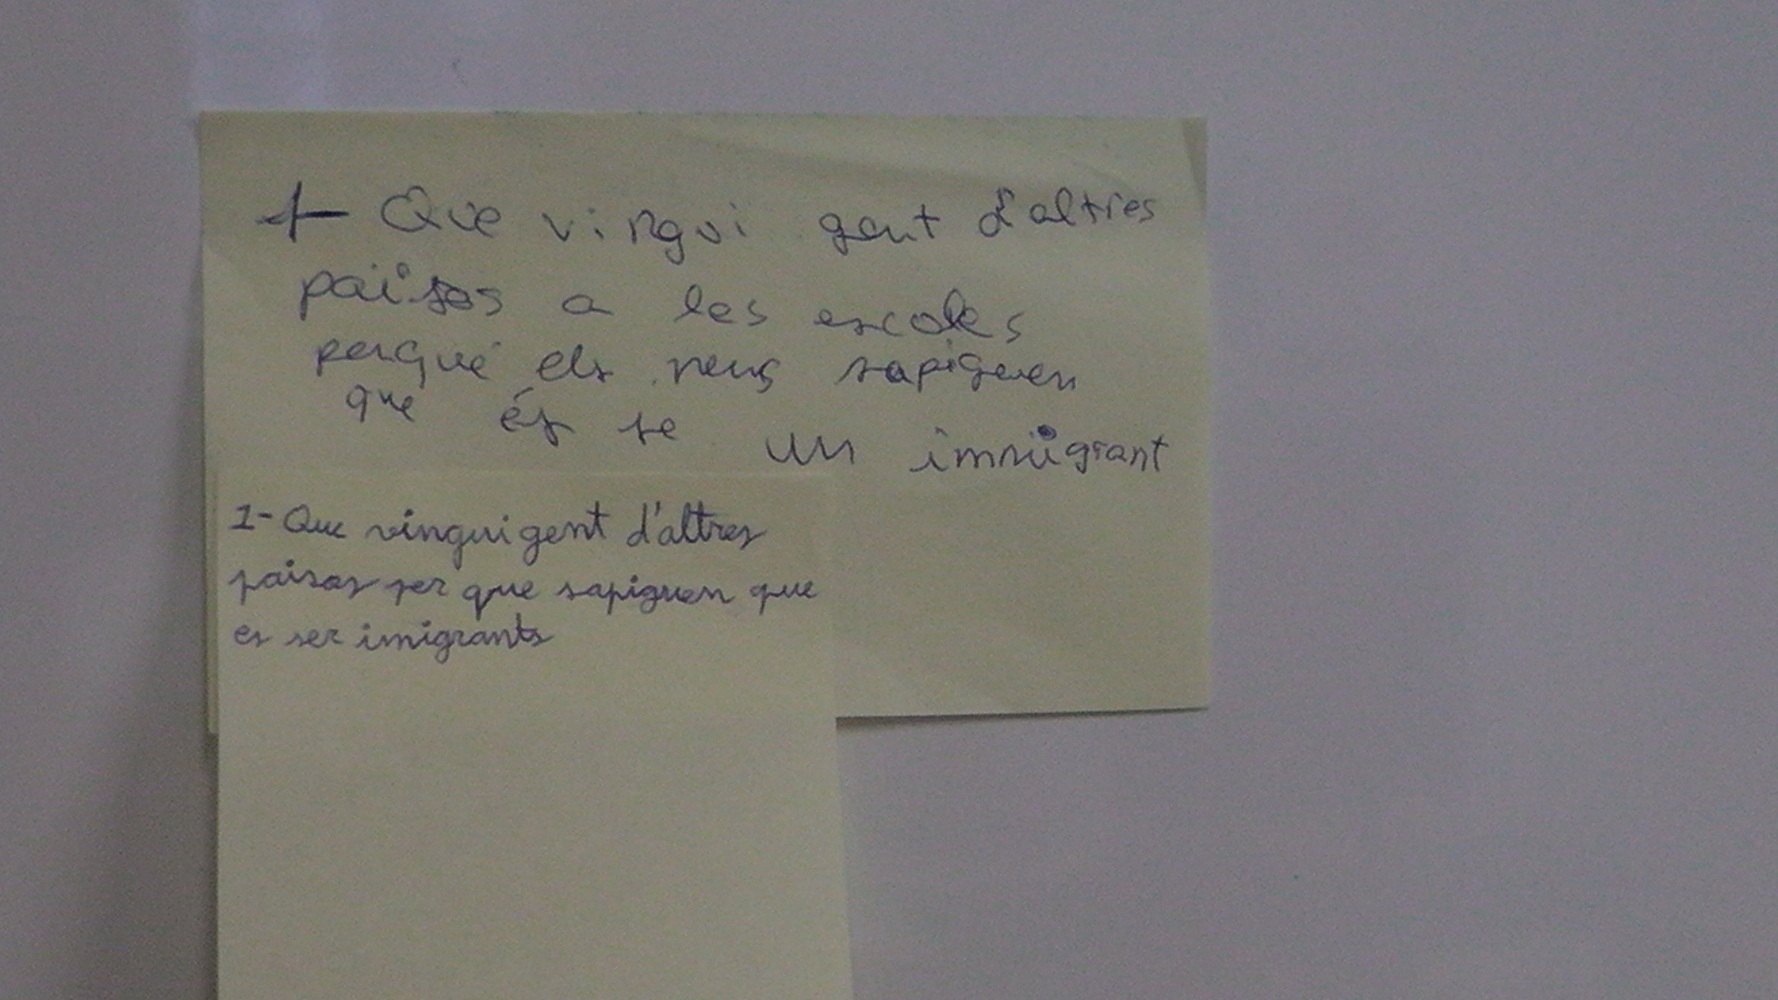 1- Que vingui gent d'altres
països a les escoles
perquè els nens sapiguen
que és se un immigrant
1- Que vingui gent d'altres
paisos per que sapiguen que
es ser imigrants